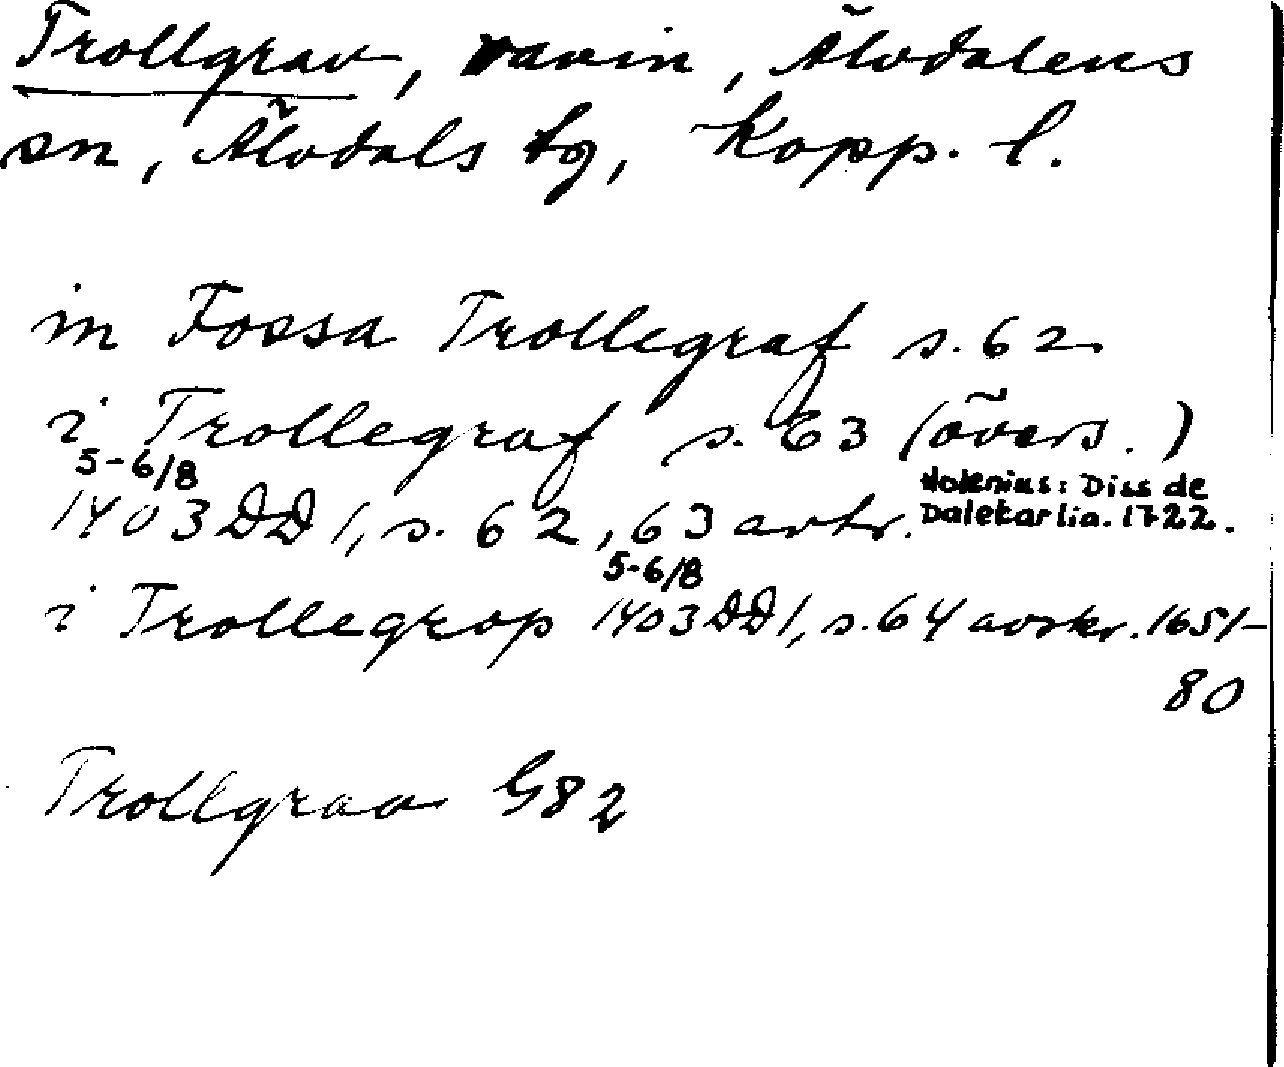 Trollgrav, ravin, Älvdalens
sn, Älvdals tg, Kopp. l.
in Fossa Trollegraf s. 62
i Trollegraf s. 63 (övers.)
5-6/8
1403 DD 1, s. 62, 63 avtr. Holenius: Diss de
Dalekarlia. 1722.
5-6/8
i Trollegrop 1403 DD 1, s. 64 avskr. 1651-
80
Trollgrav G82